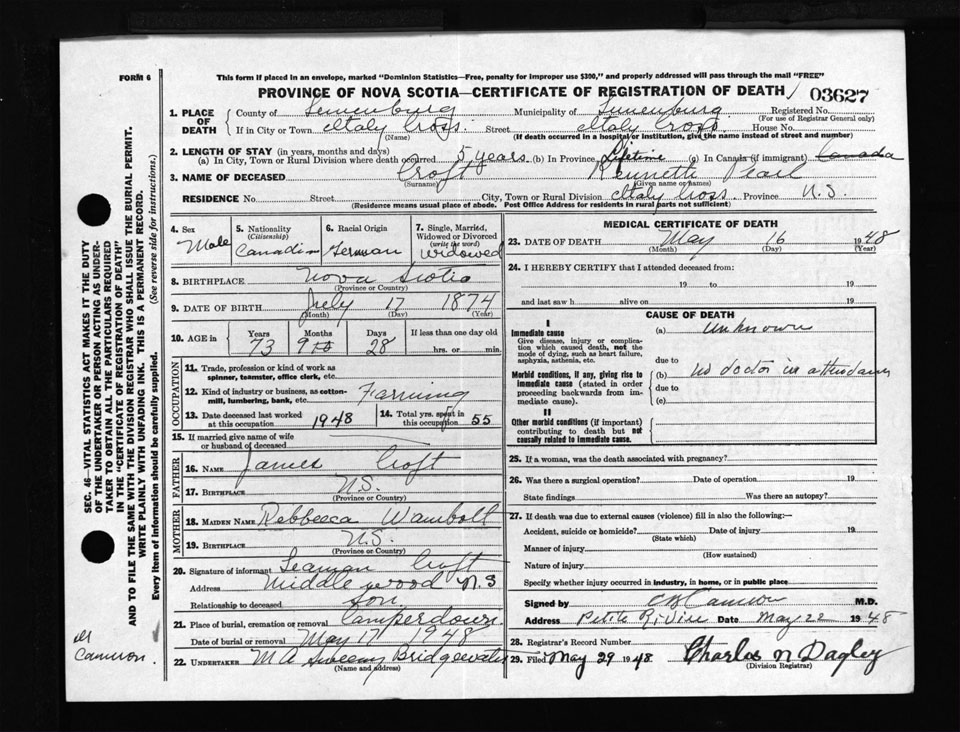 FORM 6
This form if placed in an envelope, marked "Dominion Statistics—Free, penalty for improper use $300," and properly addressed will pass through the mail "FREE"
PROVINCE OF NOVA SCOTIA—CERTIFICATE OF REGISTRATION OF DEATH 03627
1. PLACE OF DEATH County of Lunenburg Municipality of Lunenburg Registered No.
(For use of Registrar General only)
If in City or Town Italy Cross. Street Italy Cross. House No.
(Name) (If death occurred in a hospital or institution, give the name instead of street and number)
2. LENGTH OF STAY (in years, months and days)
(a) In City, Town or Rural Division where death occurred 5 years (b) In Province Lifetime (c) In Canada (if immigrant) Canada
3. NAME OF DECEASED Croft Kennette Pearl
(Surname) (Given name or names)
RESIDENCE No. Street City, Town or Rural Division Italy Cross. Province N.S.
(Residence means usual place of abode. Post Office Address for residents in rural parts not sufficient)
4. Sex Male
5. Nationality (Citizenship) Canadian
6. Racial Origin German
7. Single, Married, Widowed or Divorced (write the word) Widowed
8. BIRTHPLACE Nova Scotia
(Province or Country)
9. DATE OF BIRTH July 17 1874
(Month) (Day) (Year)
10. AGE in Years Months Days If less than one day old
73 9 28 hrs. or min.
OCCUPATION
11. Trade, profession or kind of work as spinner, teamster, office clerk, etc.
12. Kind of industry or business, as cotton-mill, lumbering, bank, etc. Farming
13. Date deceased last worked at this occupation 1948
14. Total yrs. spent in this occupation 55
15. If married give name of wife or husband of deceased
FATHER
16. NAME James Croft
17. BIRTHPLACE N.S.
(Province or Country)
MOTHER
18. MAIDEN NAME Rebbecca Wambolt
19. BIRTHPLACE N.S.
(Province or Country)
20. Signature of informant Seaman Croft
Address Middlewood N.S
Relationship to deceased Son
21. Place of burial, cremation or removal Camperdown.
Date of burial or removal May 17 1948
22. UNDERTAKER M A Sweeny Bridgewater
(Name and address)
MEDICAL CERTIFICATE OF DEATH
23. DATE OF DEATH May 16 1948
(Month) (Day) (Year)
24. I HEREBY CERTIFY that I attended deceased from:
19 to 19
and last saw h alive on 19
CAUSE OF DEATH
I
Immediate cause (a) unknown
Give disease, injury or complication which caused death, not the mode of dying, such as heart failure, asphyxia, asthenia, etc.
due to
Morbid conditions, if any, giving rise to immediate cause (stated in order proceeding backwards from immediate cause).
(b) no doctor in attendance
due to
(c)
II
Other morbid conditions (if important) contributing to death but not causally related to immediate cause.
25. If a woman, was the death associated with pregnancy?
26. Was there a surgical operation? Date of operation 19
State findings Was there an autopsy?
27. If death was due to external causes (violence) fill in also the following:—
Accident, suicide or homicide? Date of injury 19
(State which)
Manner of injury
(How sustained)
Nature of injury
Specify whether injury occurred in industry, in home, or in public place
Signed by Cameron M.D.
Address Petite Riviere Date May 22 1948
28. Registrar's Record Number
29. Filed May 29 1948 Charles N Dagley
(Division Registrar)
SEC. 46—VITAL STATISTICS ACT MAKES IT THE DUTY
OF THE UNDERTAKER OR PERSON ACTING AS UNDERTAKER TO OBTAIN ALL THE PARTICULARS REQUIRED
IN THE "CERTIFICATE OF REGISTRATION OF DEATH"
AND TO FILE THE SAME WITH THE DIVISION REGISTRAR WHO SHALL ISSUE THE BURIAL PERMIT.
WRITE PLAINLY WITH UNFADING INK. THIS IS A PERMANENT RECORD.
Every item of information should be carefully supplied. (See reverse side for instructions.)
Cameron.